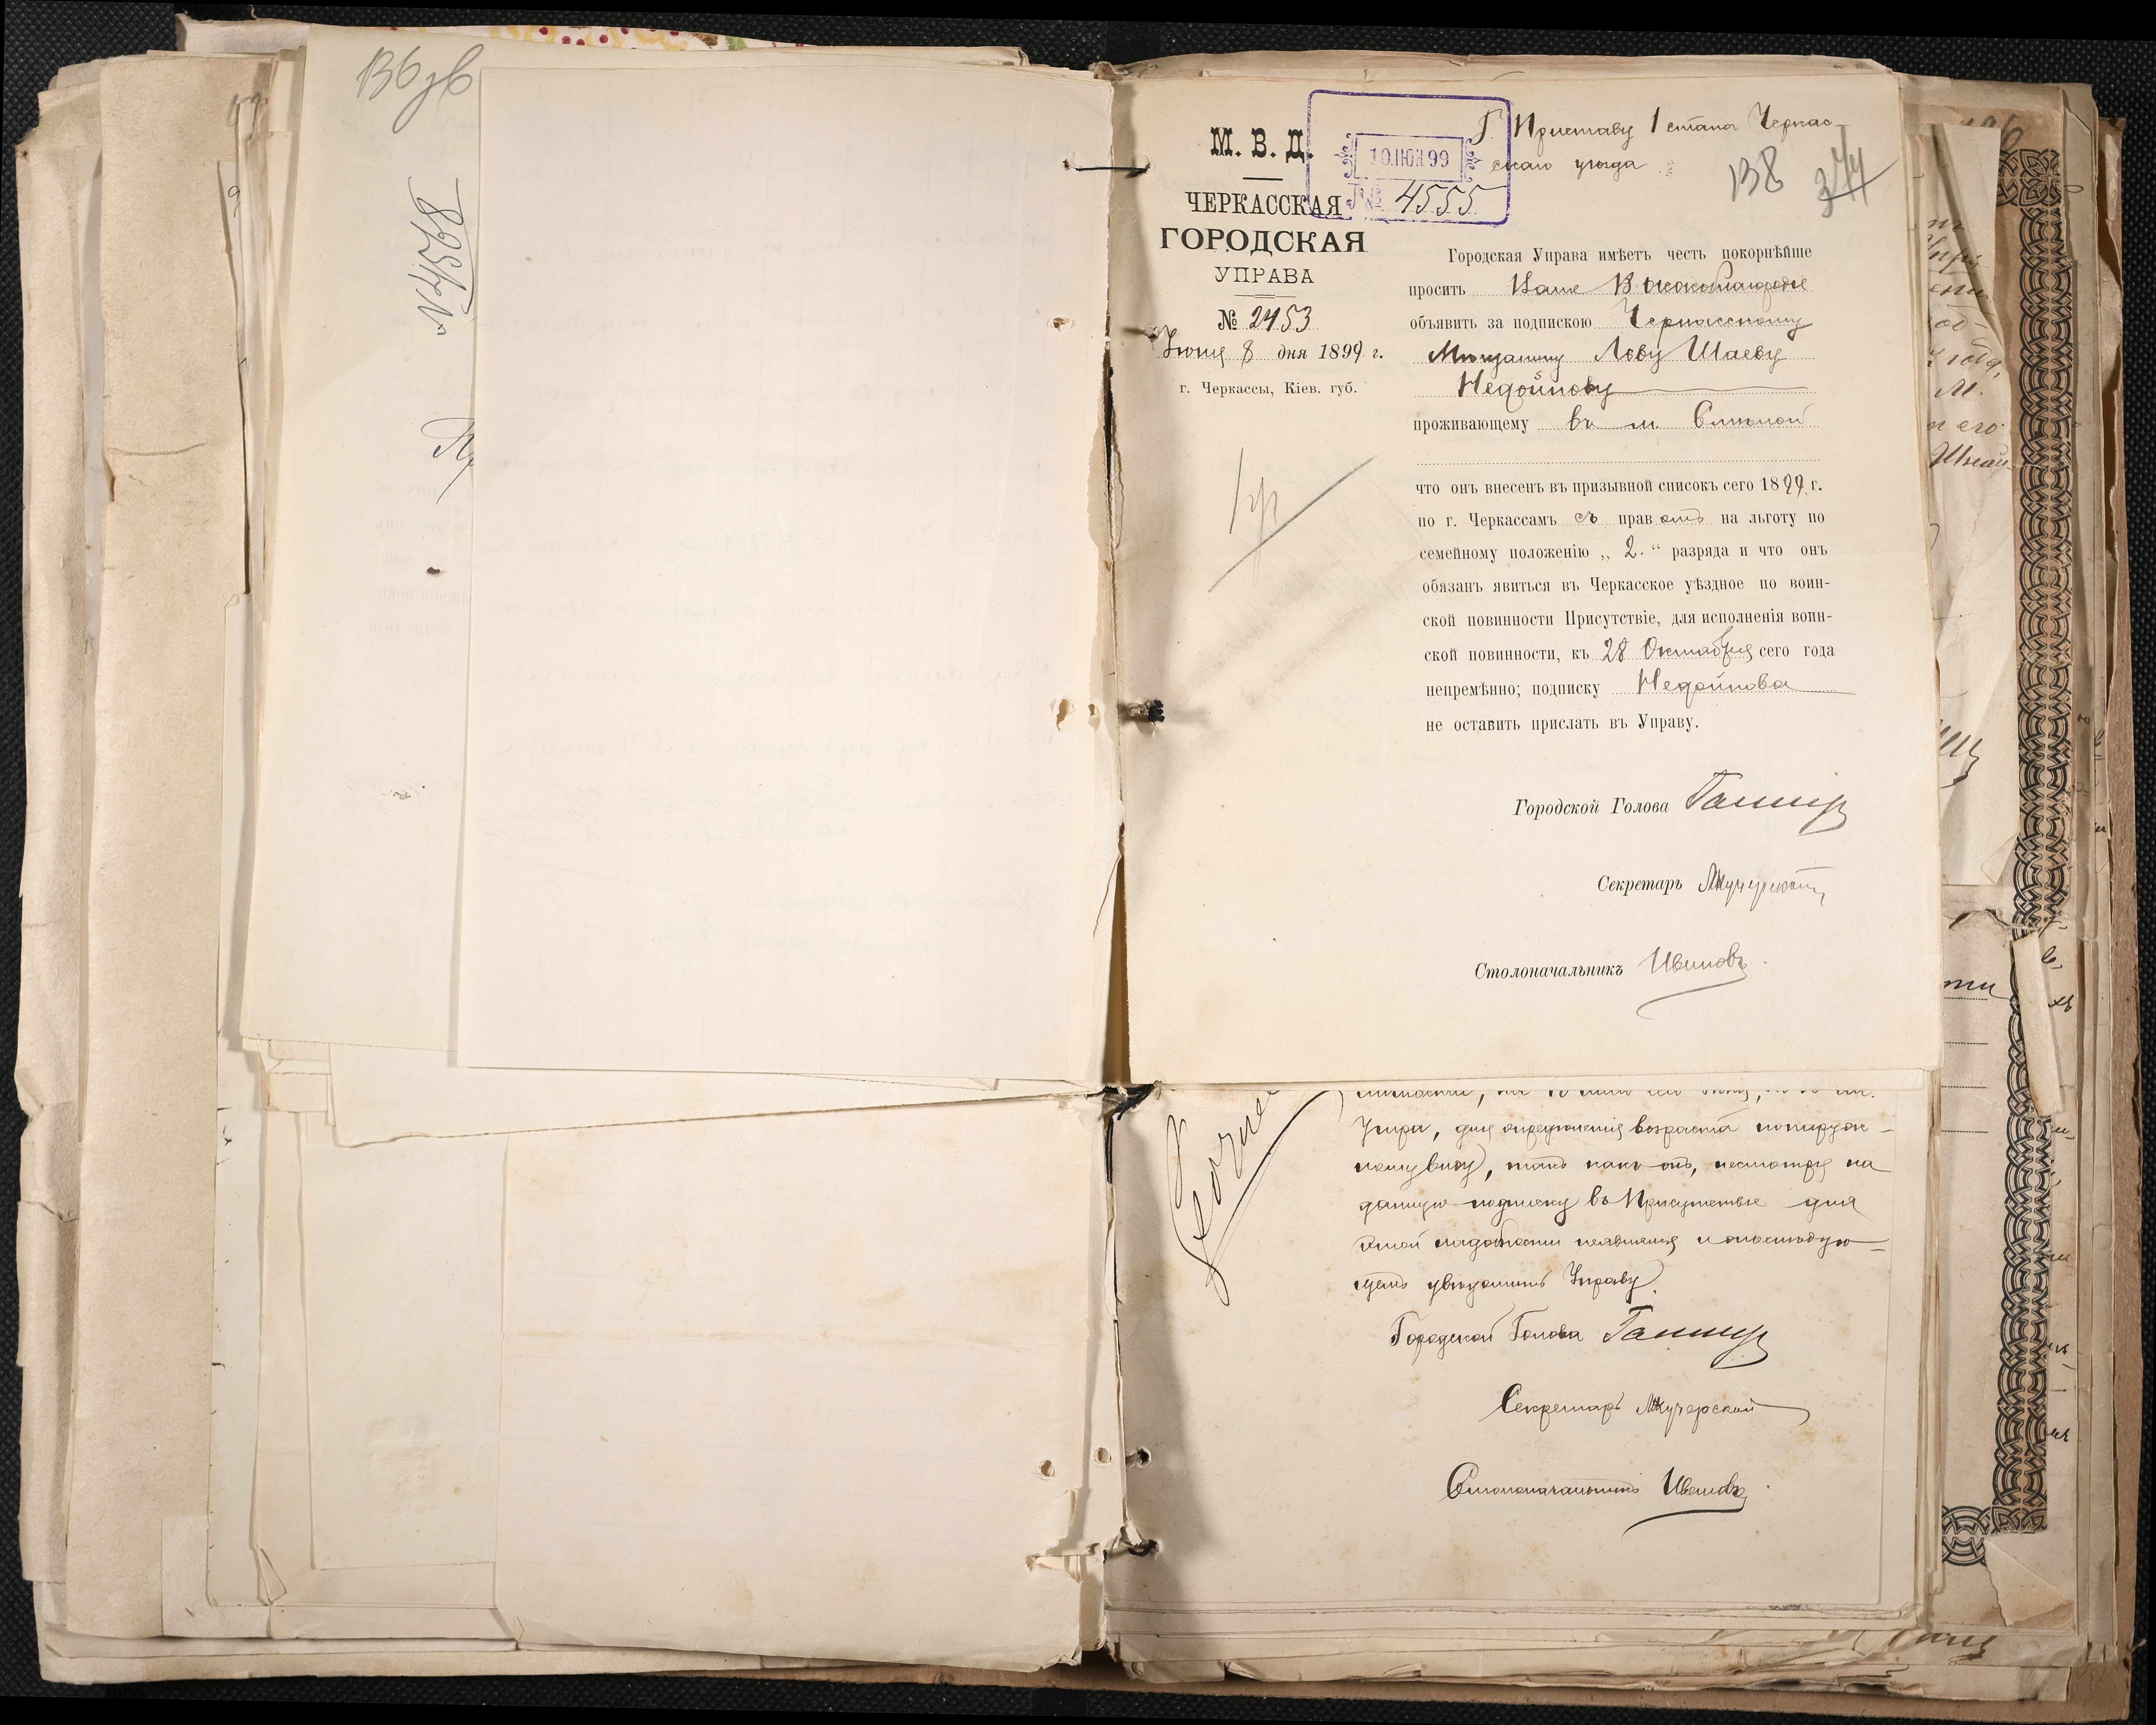 136 об
М. В. Д.
ЧЕРКАССКАЯ
ГОРОДСКАЯ
УПРАВА
№ 2453
Іюня 8 дня 1899 г.
г. Черкассы, Кіев. губ.
10.ІЮН.99
№ 4555
Г. Приставу 1 стана Черкас-
скаго уѣзда
138
374
Городская Управа имѣетъ честь покорнѣйше
просить Ваше Высокоблагородіе
объявить за подпискою Черкасскому
Мѣщанину Лову Шаеву
Недойнову
проживающему въ м Смѣлой
что онъ внесенъ въ призывной списокъ сего 1899 г.
по г. Черкассамъ съ правомъ на льготу по
семейному положенію „ 2. “ разряда и что онъ
обязанъ явиться въ Черкасское уѣздное по воин-
ской повинности Присутствіе, для исполненія воин-
ской повинности, къ 28 Октября сего года
непремѣнно; подписку Недойнова
не оставить прислать въ Управу.
Городской Голова
Секретарь
Столоначальникъ Ивановъ
для опредѣленія возраста по наруж-
ному виду), такъ какъ онъ, несмотря на
данную подписку въ Присутствіе для
этой надобности неявился и о послѣдую-
щемъ увѣдомить Управу.
Городской Голова
Секретарь
Столоначальникъ Ивановъ